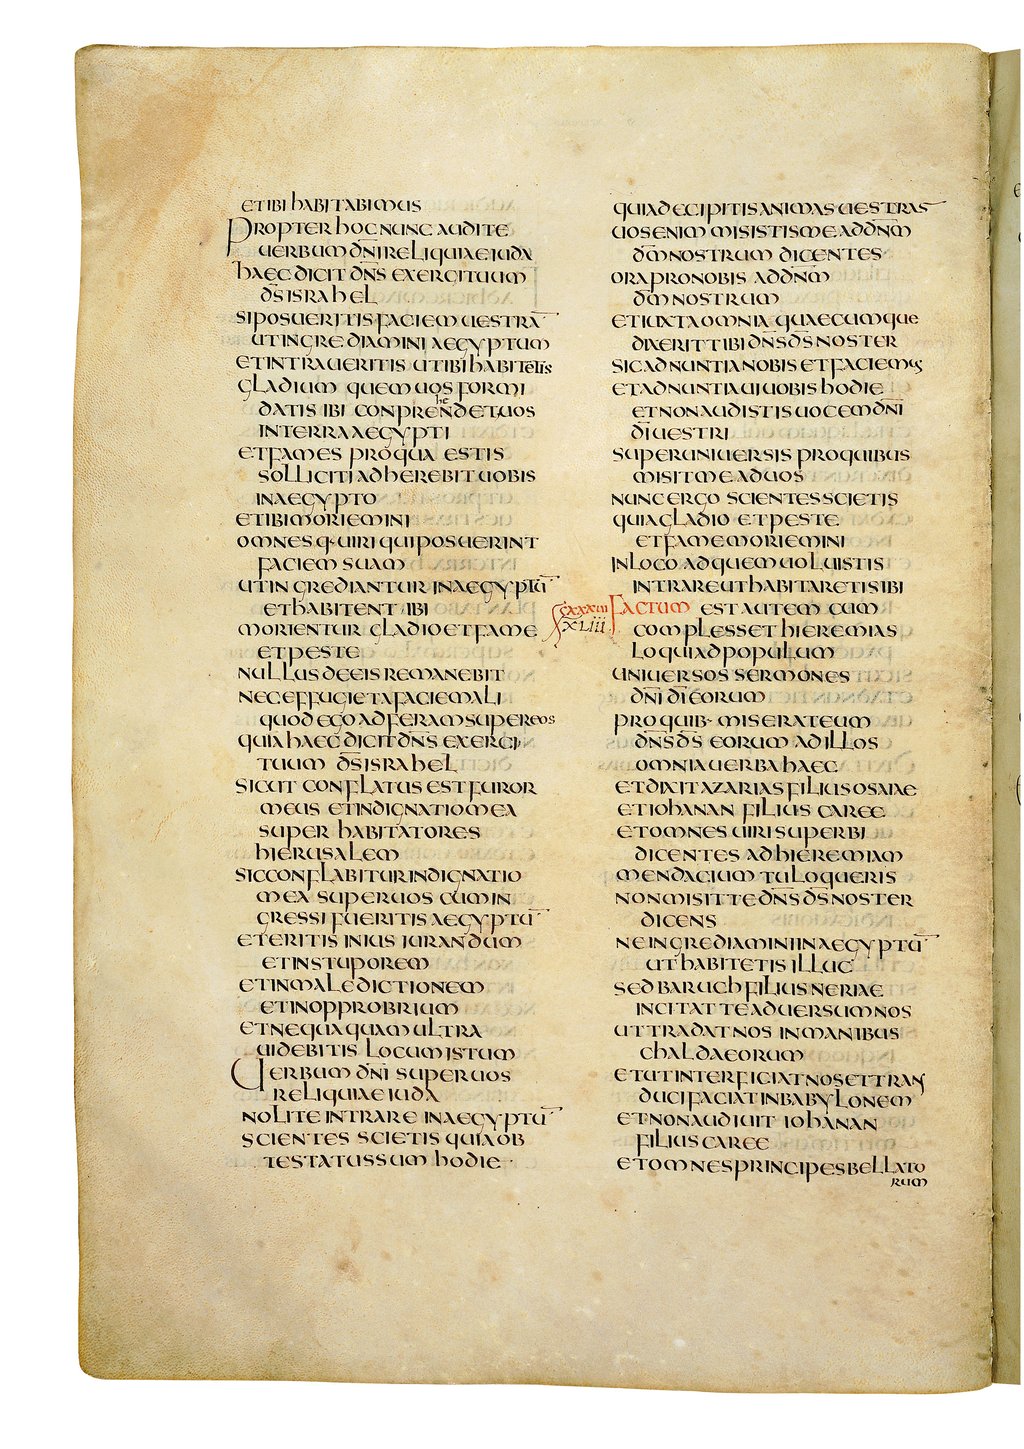 ET IBI hABITABIMUS
PROPTER hOC NUNC AUDITE
UERBUM DN̄I RELIQUIAE IUDA
hAEC DICIT DN̄S EXERCITUUM
DS̄ ISRAhEL
SI POSUERITIS FACIEM UESTRĀ
UT INGREDIAMINI AEGYPTUM
ET INTRAUERITIS UT IBI hABITETIS
GLADIUM QUEM UOS FORMI
DATIS IBI CONPREhENDET UOS
IN TERRA AEGYPTI
ET FAMES PRO QUA ESTIS
SOLLICITI ADHEREBIT UOBIS
IN AEGYPTO
ET IBI MORIEMINI
OMNESQ· UIRI QUI POSUERINT
FACIEM SUAM
UT INGREDIANTUR IN AEGYPTŪ
ET hABITENT IBI
MORIENTUR GLADIO ET FAME
ET PESTE
NULLUS DE EIS REMANEBIT
NEC EFFUGIET A FACIE MALI
QUOD EGO ADFERAM SUPER EOS
QUIA hAEC DICIT DN̄S EXERCI
TUUM DS̄ ISRAhEL
SICUT CONFLATUS EST FUROR
MEUS ET INDIGNATIO MEA
SUPER hABITATORES
hIERUSALEM
SIC CONFLABITUR INDIGNATIO
MEA SUPER UOS CUM IN
GRESSI FUERITIS AEGYPTŪ
ET ERITIS IN IUS IURANDUM
ET IN STUPOREM
ET IN MALEDICTIONEM
ET IN OPPROBRIUM
ET NEQUAQUAM ULTRA
UIDEBITIS LOCUM ISTUM
UERBUM DN̄I SUPER UOS
RELIQUIAE IUDA
NOLITE INTRARE IN AEGYPTŪ
SCIENTES SCIETIS QUIA OB
TESTATUS SUM hODIE ·
QUIA DECIPITIS ANIMAS UESTRAS
UOS ENIM MISISTIS ME AD DN̄M
DM̄ NOSTRUM DICENTES
ORA PRO NOBIS AD DN̄M
DM̄ NOSTRUM
ET IUXTA OMNIA QUAECUMQUE
DIXERIT TIBI DN̄S DS̄ NOSTER
SIC ADNUNTIA NOBIS ET FACIEMUS
ET ADNUNTIAUI UOBIS hODIE
ET NON AUDISTIS UOCEM DN̄I
DĪ UESTRI
SUPER UNIUERSIS PRO QUIBUS
MISIT ME AD UOS
NUNC ERGO SCIENTES SCIETIS
QUIA GLADIO ET PESTE
ET FAME MORIEMINI
IN LOCO AD QUEM UOLUISTIS
INTRARE UT hABITARETIS IBI
FACTUM EST AUTEM CUM
XLIII COMPLESSET hIEREMIAS
LOQUI AD POPULUM
UNIUERSOS SERMONES
DN̄I DĪ EORUM
PRO QUIB· MISERAT EUM
DN̄S DS̄ EORUM AD ILLOS
OMNIA UERBA hAEC
ET DIXIT AZARIAS FILIUS OSAIAE
ET IOhANAN FILIUS CAREE
ET OMNES UIRI SUPERBI
DICENTES AD hIEREMIAM
MENDACIUM TU LOQUERIS
NON MISIT TE DN̄S DS̄ NOSTER
DICENS
NE INGREDIAMINI IN AEGYPTŪ
UT hABITETIS ILLUC
SED BARUCh FILIUS NERIAE
INCITAT TE ADUERSUM NOS
UT TRADAT NOS IN MANIBUS
ChALDAEORUM
ET UT INTERFICIAT NOS ET TRANS
DUCI FACIAT IN BABYLONEM
ET NON AUDIUIT IOhANAN
FILIUS CAREE
ET OMNES PRINCIPES BELLATO
RUM